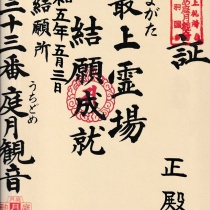 証
正殿
もがた
最上霊場
結願成就
和五年五月三日
結願所
三十三番庭月観音
うちどめ